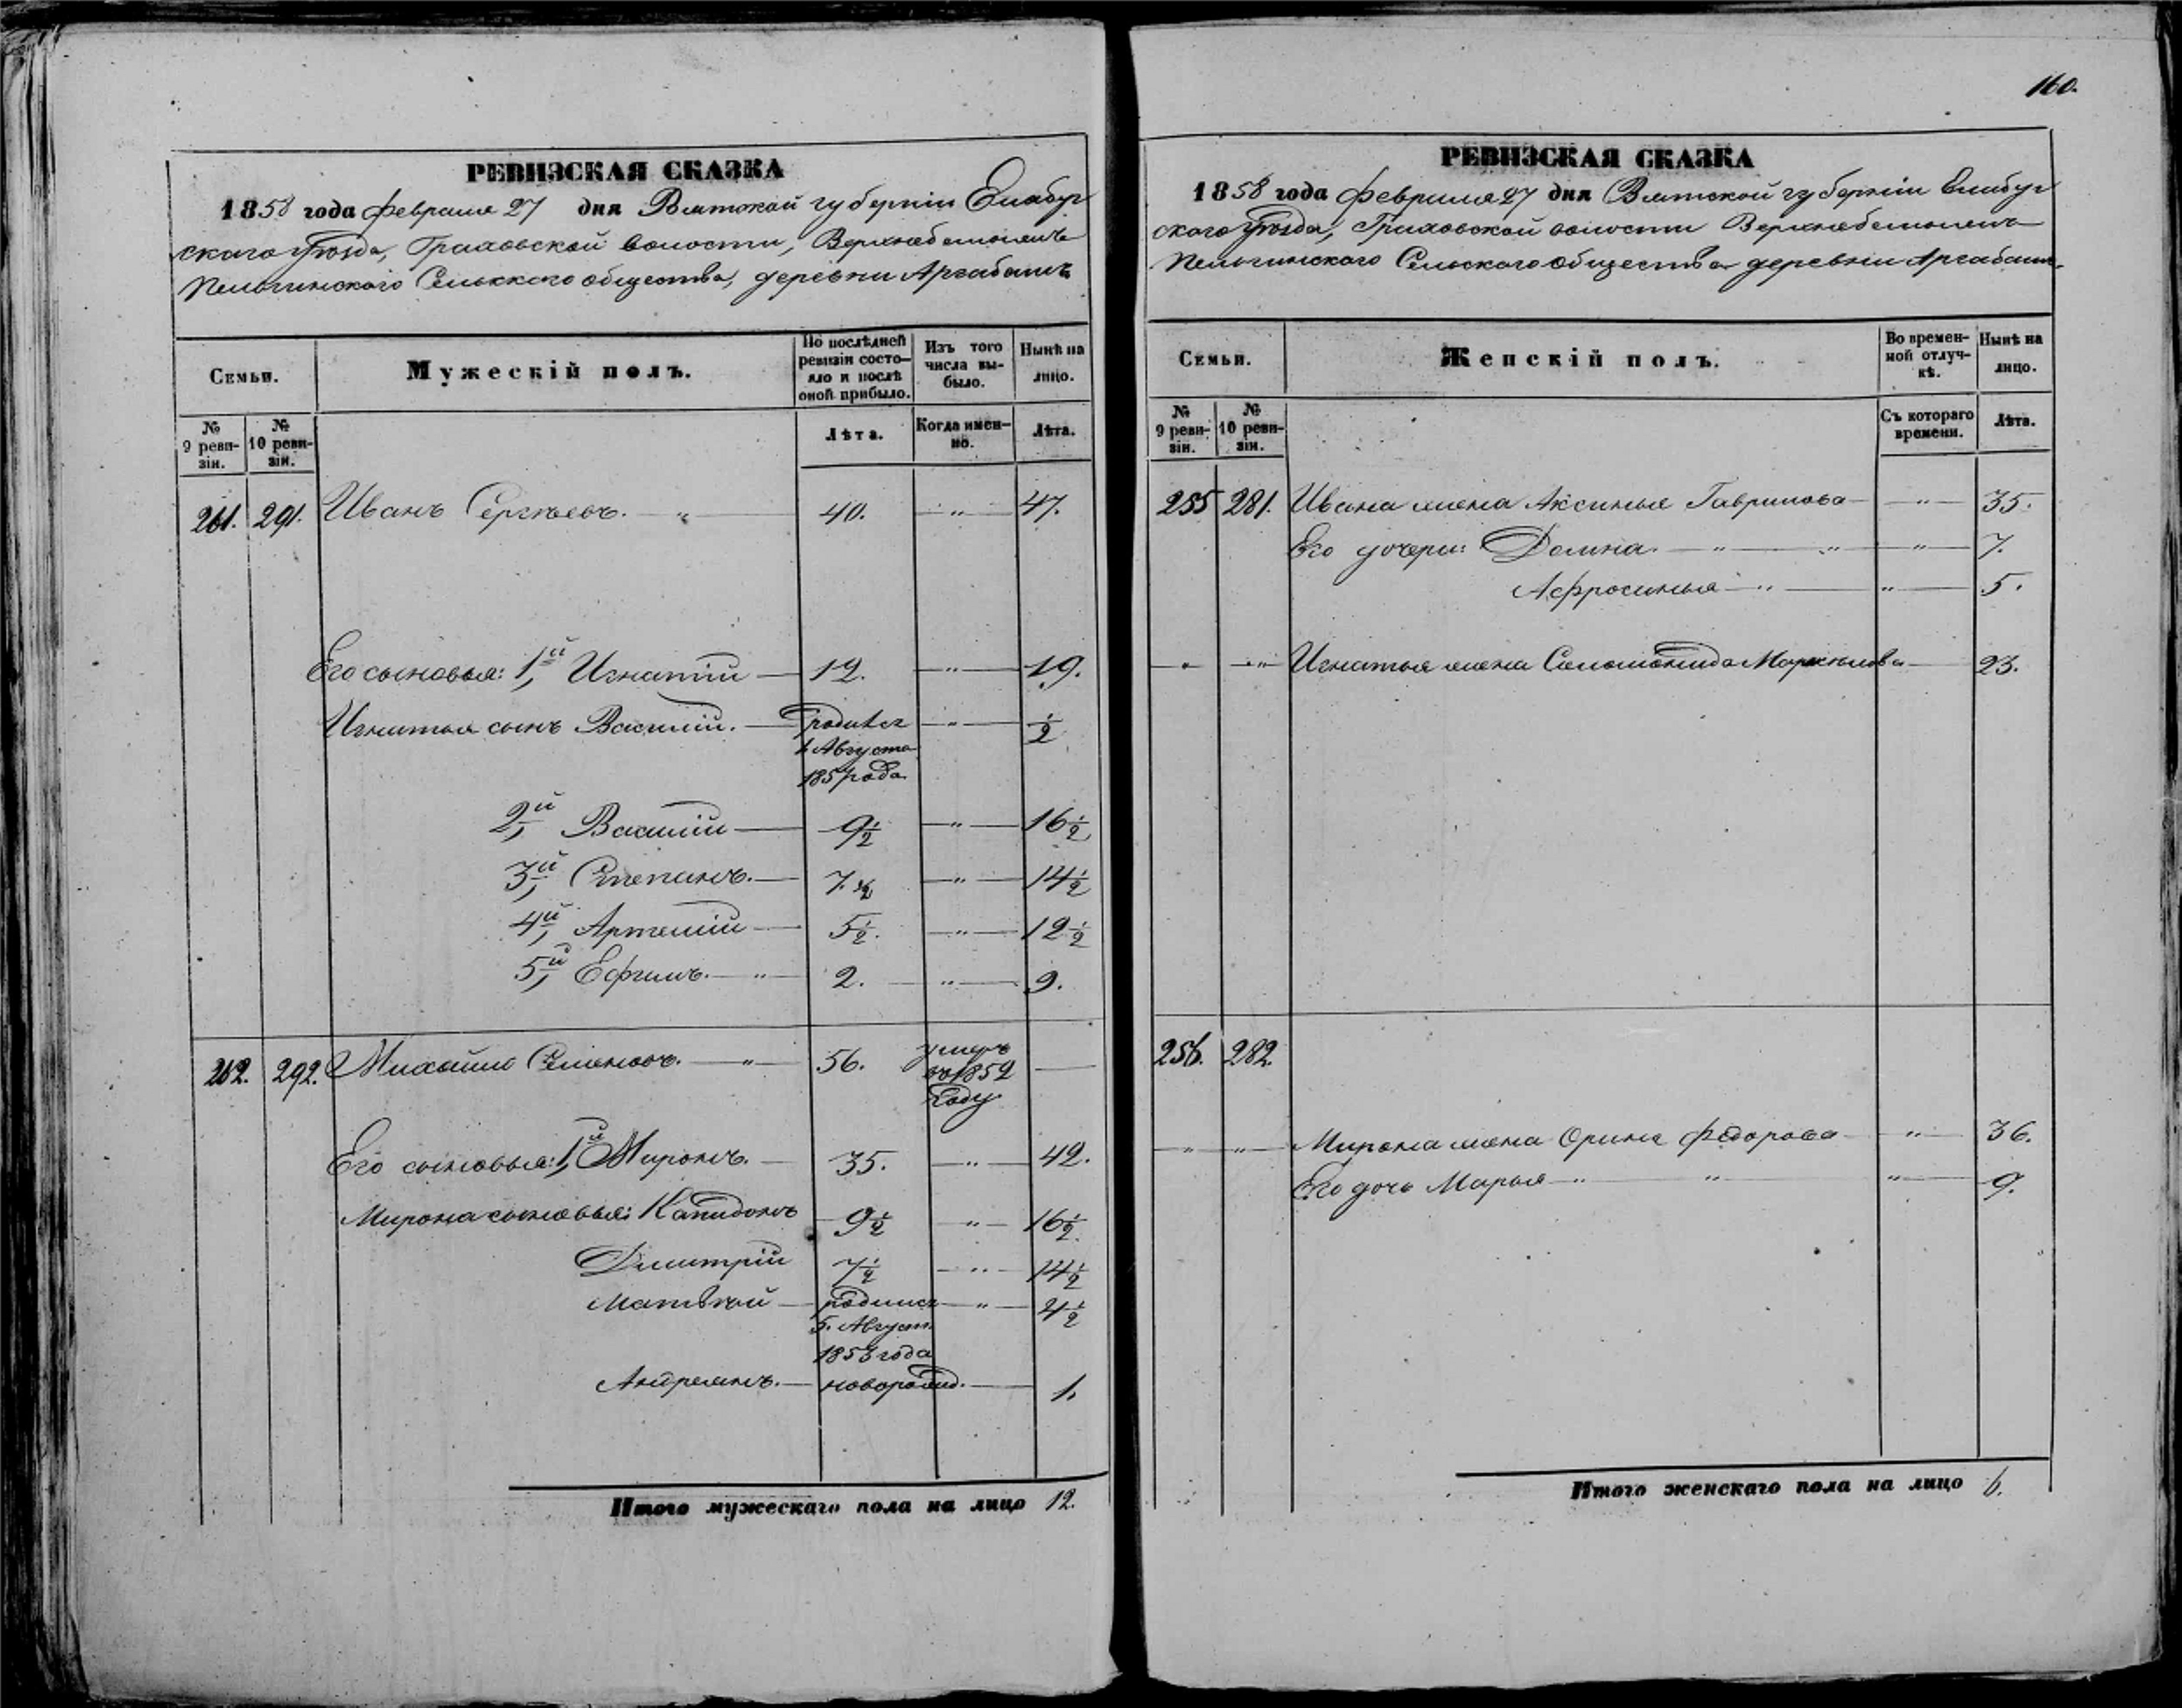 160.
РЕВИЗСКАЯ СКАЗКА
1858 года Февраля 27 дня Вятской губернiи Елабуг
скаго уѣзда, Граховской волости,
Сельскаго общества, деревни Аргабашъ
Семьи.
Мужескiй полъ.
По послѣдней
ревизiи состо-
яло и послѣ
оной прибыло.
Изъ того
числа вы-
было.
Нынѣ на
лицо.
№
9 реви-
зiи.
№
10 реви-
зiи.
Лѣта.
Когда имен-
но.
Лѣта.
261. 291. Иванъ Сергѣевъ. — „ — 40. — „ — 47.
Его сыновья: 1й Игнатiй — 12. — „ — 19.
Игнатья сынъ Василiй. — родился — „ — 1/2
Августа
1857 года
2й Василiй — 9 1/2 — „ — 16 1/2
3й Степанъ. — 7 1/2 — „ — 14 1/2
4й Артемiй — 5 1/2. — „ — 12 1/2
5й Ефимъ. — „ — 2. — „ — 9.
262. 292. Михайло Семеновъ. — „ — 56. умеръ —
въ 1852
году
Его сыновья: 1й Миронъ. — 35. — „ — 42.
Мирона сыновья: Капидонъ 9 1/2 „ — 16 1/2
Дмитрiй 7 1/2 — „ — 14 1/2
Матвѣй — родился — „ — 4 1/2
5. Август.
1853 года
Андреянъ. — новорожд. — 1.
Итого мужескаго пола на лицо 12.
РЕВИЗСКАЯ СКАЗКА
1858 года Февраля 27 дня Вятской губернiи Елабуг
скаго уѣзда, Граховской волости
Сельскаго общества деревни Аргабашъ
Семьи.
Женскiй полъ.
Во времен-
ной отлуч-
кѣ.
Нынѣ на
лицо.
№
9 реви-
зiи.
№
10 реви-
зiи.
Съ котораго
времени.
Лѣта.
255 281. Ивана жена Аксинья Гаврилова — „ — 35.
Его дочери: Домна. — „ — „ — „ — 7.
Афросинья — „ — „ — 5.
— „ — „ Игнатья жена Саломонида — 23.
256. 282.
— „ — „ — Мирона жена Орина Федорова — „ — 36.
Его дочь Марья — „ „ „ — 9.
Итого женскаго пола на лицо 6.